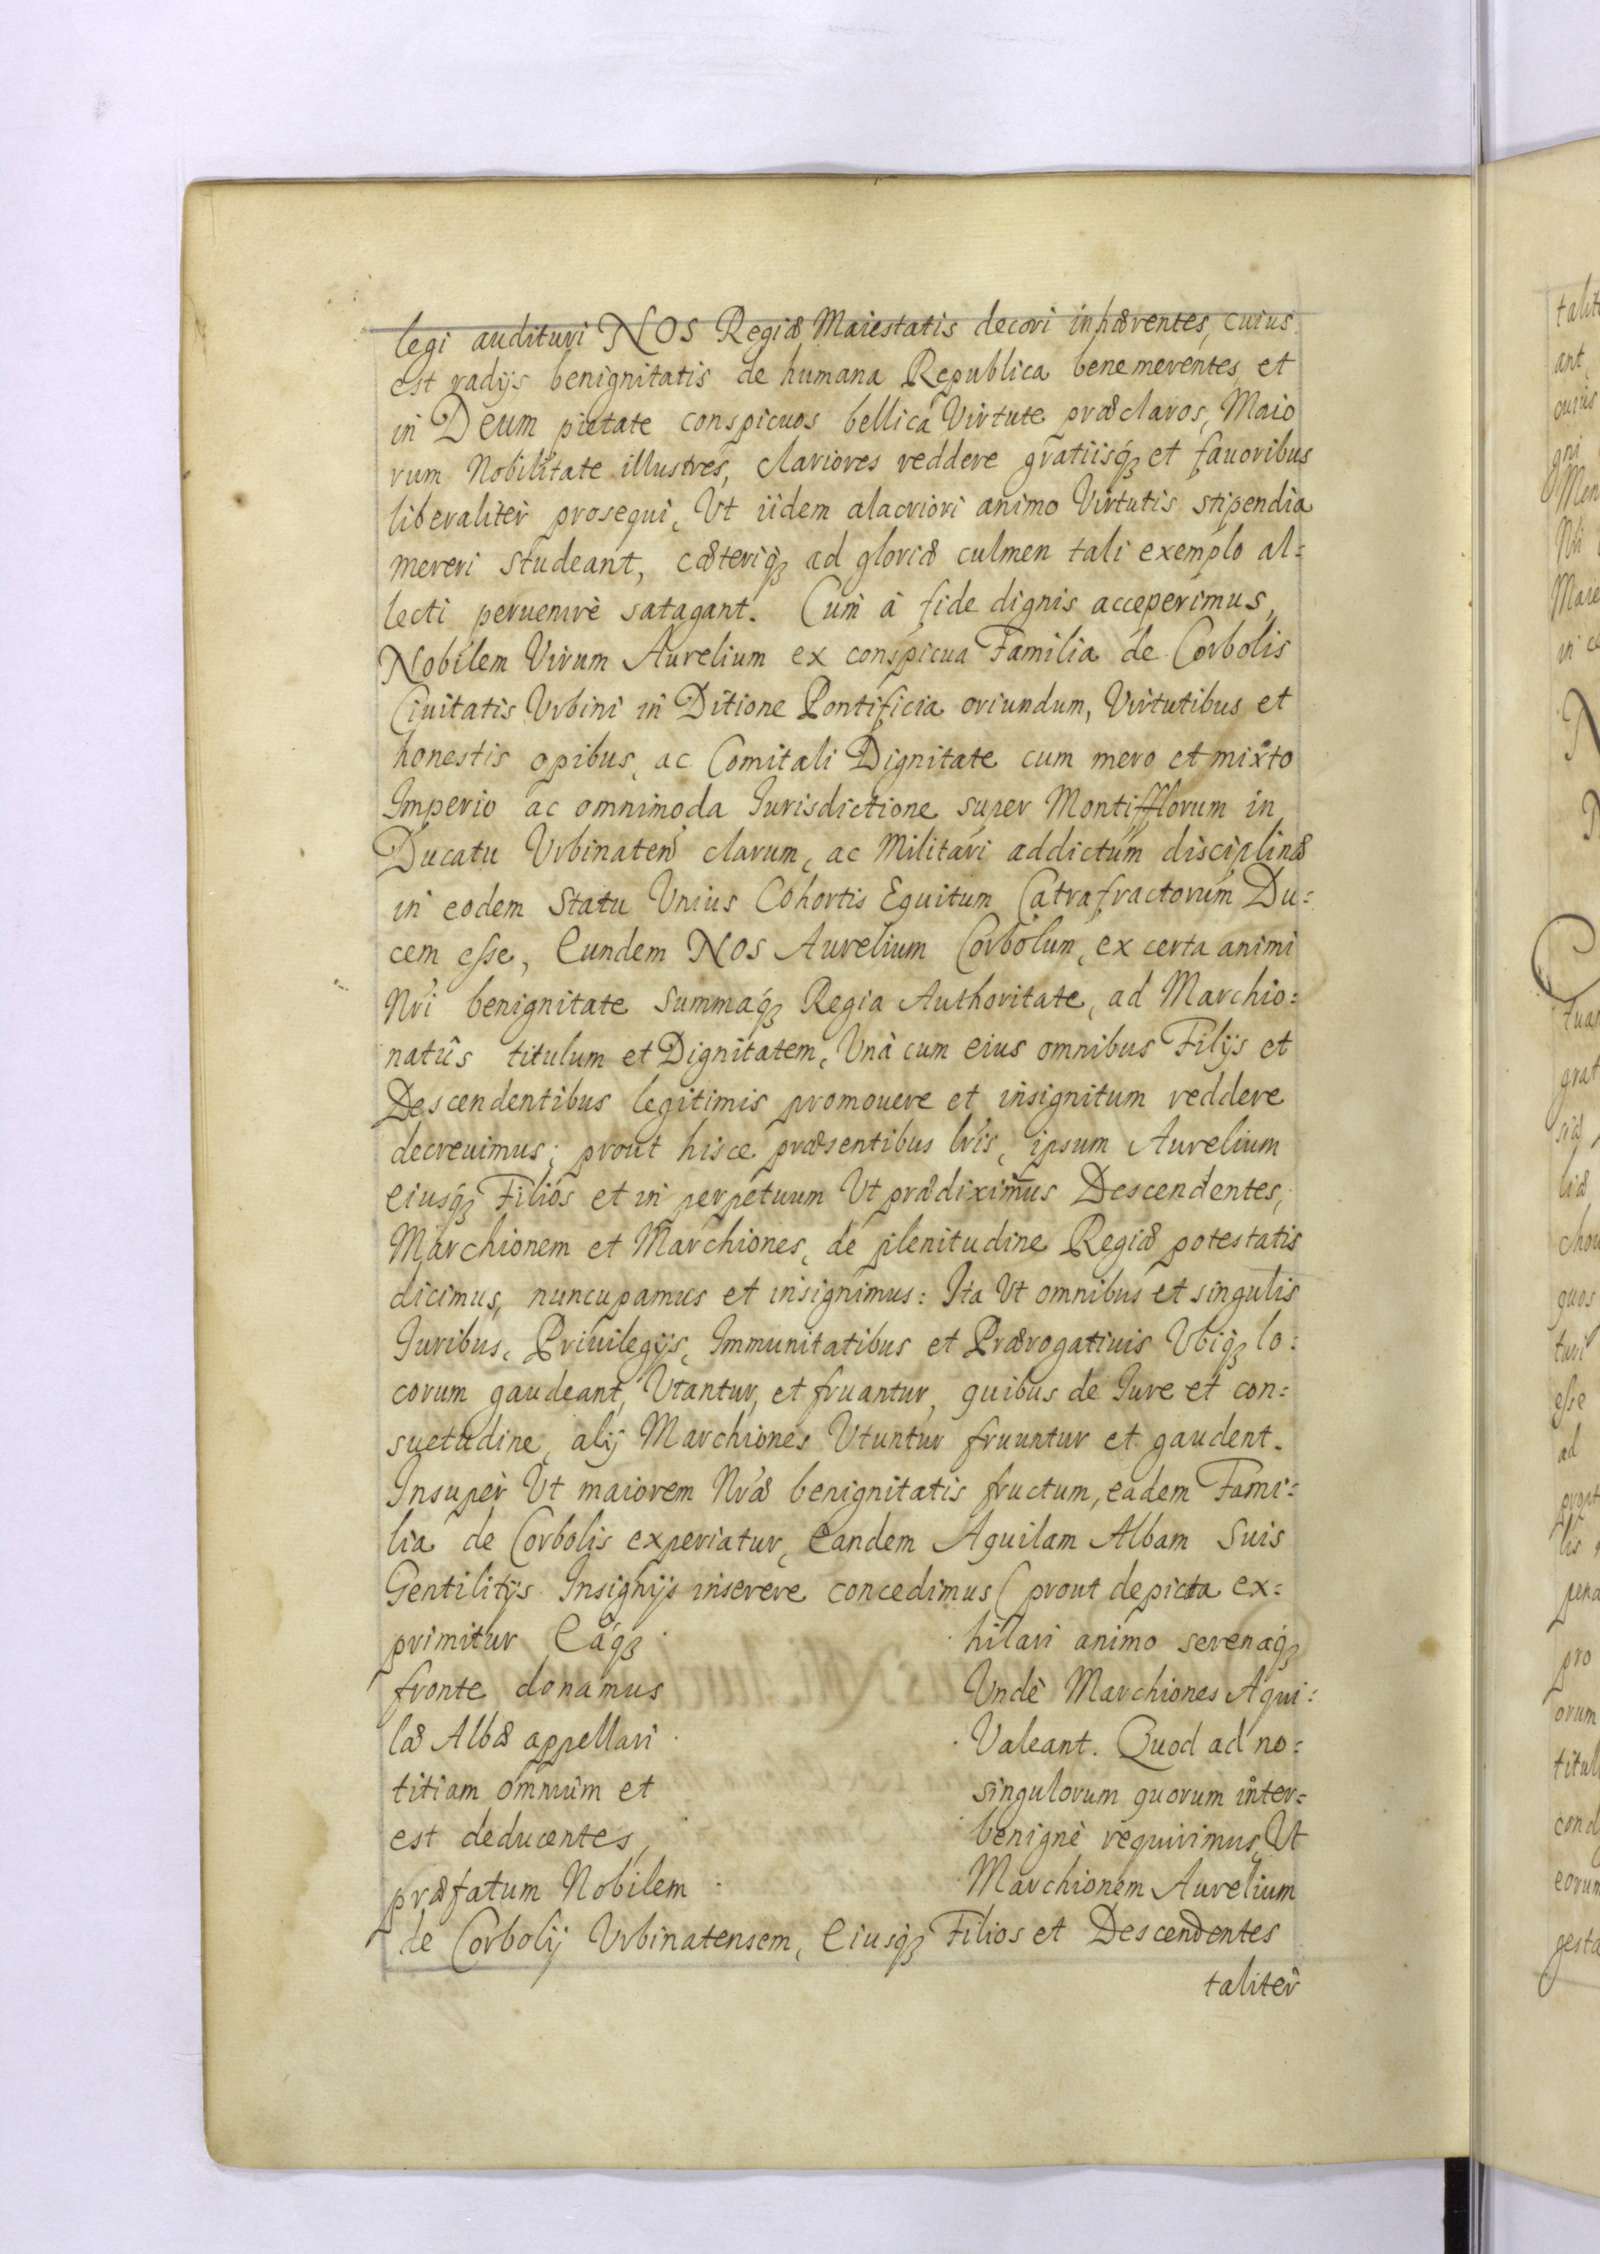 legi audituri NOS Regiæ Maiestatis decori inhærentes, cuius
est radijs benignitatis de humana Republica benemerentes, et
in Deum pietate conspicuos bellicâ Virtute præclaros, Maio
rum Nobilitate illustres, clariores reddere gratiisq̃ et fauoribus
liberaliter prosequi, Vt iidem alacriori animo Virtutis stipendia
mereri studeant, cæteriq̃ ad gloriæ culmen tali exemplo al=
lecti peruenire satagant. Cum à fide dignis acceperimus,
Nobilem Virum Aurelium ex conspicua Familia de Corbolis
Ciuitatis Vrbini in Ditione Pontificia oriundum, Virtutibus et
honestis opibus, ac Comitali Dignitate cum mero et mixto
Imperio ac omnimoda Iurisdictione super Montifflorum in
Ducatu Vrbinateñ clarum, ac Militari addictum disciplinæ
in eodem Statu Vnius Cohortis Equitum Catrafractorum Du=
cem esse, Eundem NOS Aurelium Corbolum, ex certa animi
Nr̃i benignitate summaq̃ Regia Authoritate, ad Marchio=
natûs titulum et Dignitatem, Vnà cum eius omnibus Filijs et
Descendentibus legitimis promouere et insignitum reddere
decreuimus; prout hisce præsentibus lr̃is, ipsum Aurelium
eiusq̃ Filios et in perpetuum Vt prædiximus Descendentes,
Marchionem et Marchiones, de plenitudine Regiæ potestatis
dicimus, nuncupamus et insignimus: Ita Vt omnibus et singulis
Iuribus, Priuilegijs, Immunitatibus et Prærogatiuis Vbiq̃ lo=
corum gaudeant, Vtantur, et fruantur, quibus de Iure et con=
suetudine, alij Marchiones Vtuntur fruuntur et gaudent.
Insuper Vt maiorem Nr̃æ benignitatis fructum, eadem Fami=
lia de Corbolis experiatur, Eandem Aquilam Albam Suis
Gentilitijs Insignijs inserere concedimus (prout depicta ex=
primitur Eáq̃ hilari animo serenaq̃
fronte donamus Vndè Marchiones Aqui=
læ Albæ appellari Valeant. Quod ad no=
titiam omnium et singulorum quorum inter=
est deducentes, benignè requirimus, Vt
præfatum Nobilem Marchionem Aurelium
de Corbolij Vrbinatensem, Eiusq̃ Filios et Descendentes
taliter